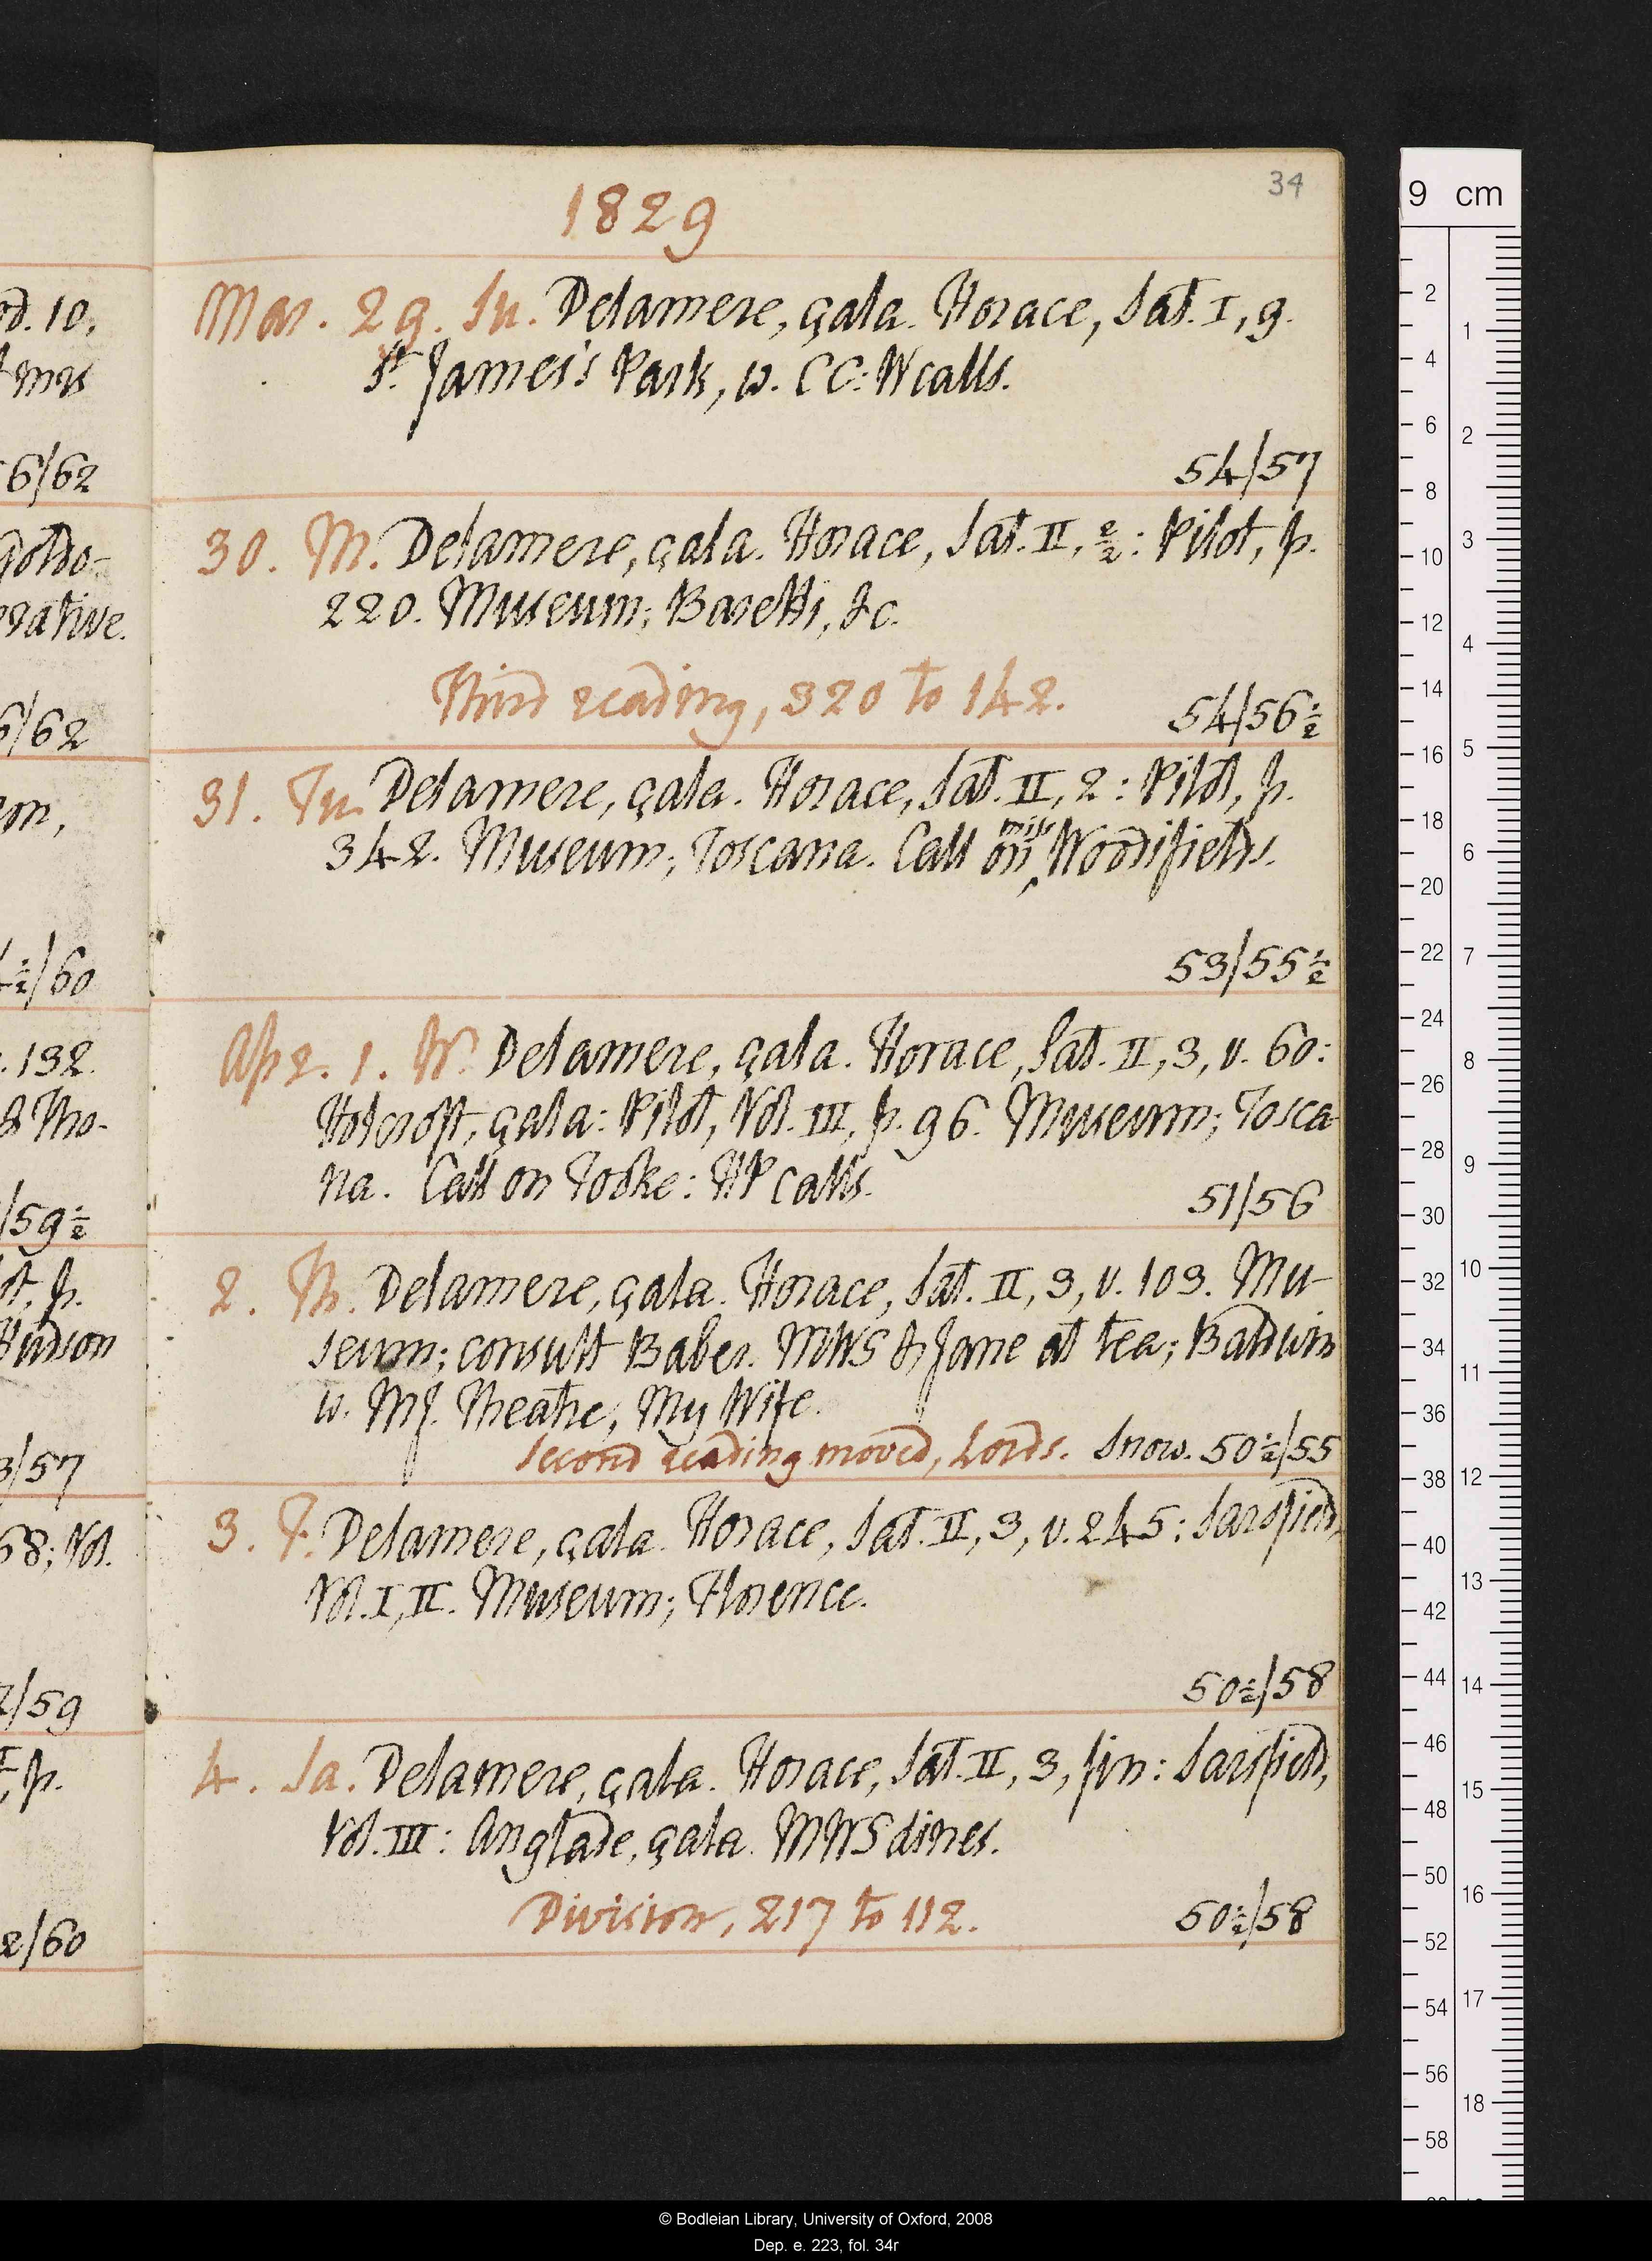 34
1829
Mar. 29. Su. Delamere, çala. Horace, Sat. I, 9.
St James's Park, w. CC: W calls.
54/57
30. M. Delamere, çala. Horace, Sat. II, 2/2: Pilot, p.
220. Museum; Baretti, &c.
Third reading, 320 to 142.
54/56½
31. Tu. Delamere, çala. Horace, Sat. II, 2: Pilot, p.
342. Museum; Toscana. Call on miss Woodifields.
53/55½
Apr. 1. W. Delamere, çala. Horace, Sat. II, 3, v. 60:
Holcroft, çala: Pilot, Vol. III, p. 96. Museum; Tosca
na. Call on Tooke: HP calls.
51/56
2. Th. Delamere, çala. Horace, Sat. II, 3, v. 103. Mu-
seum; consult Baber. MWS & Jane at tea; Baldwin
w. MJ. Theatre, My Wife.
Second reading moved, Lords. Snow. 50½/55
3. F. Delamere, çala. Horace, Sat. II, 3, v. 245: Sarsfield,
Vol. I, II. Museum; Florence.
50½/58
4. Sa. Delamere, çala. Horace, Sat. II, 3, fin: Sarsfield,
Vol. III: Anglade, çala. MWS dines.
Division, 217 to 112.
50½/58
od. 10,
mrs
6/62
rative.
/62
on,
½/60
. 132.
& Tho-
/59½
p.
Hudson
3/57
58; Vol.
/59
, p.
2/60
9 cm
2
4
6
8
10
12
14
16
18
20
22
24
26
28
30
32
34
36
38
40
42
44
46
48
50
52
54
56
58
1
2
3
4
5
6
7
8
9
10
11
12
13
14
15
16
17
18
© Bodleian Library, University of Oxford, 2008
Dep. e. 223, fol. 34r